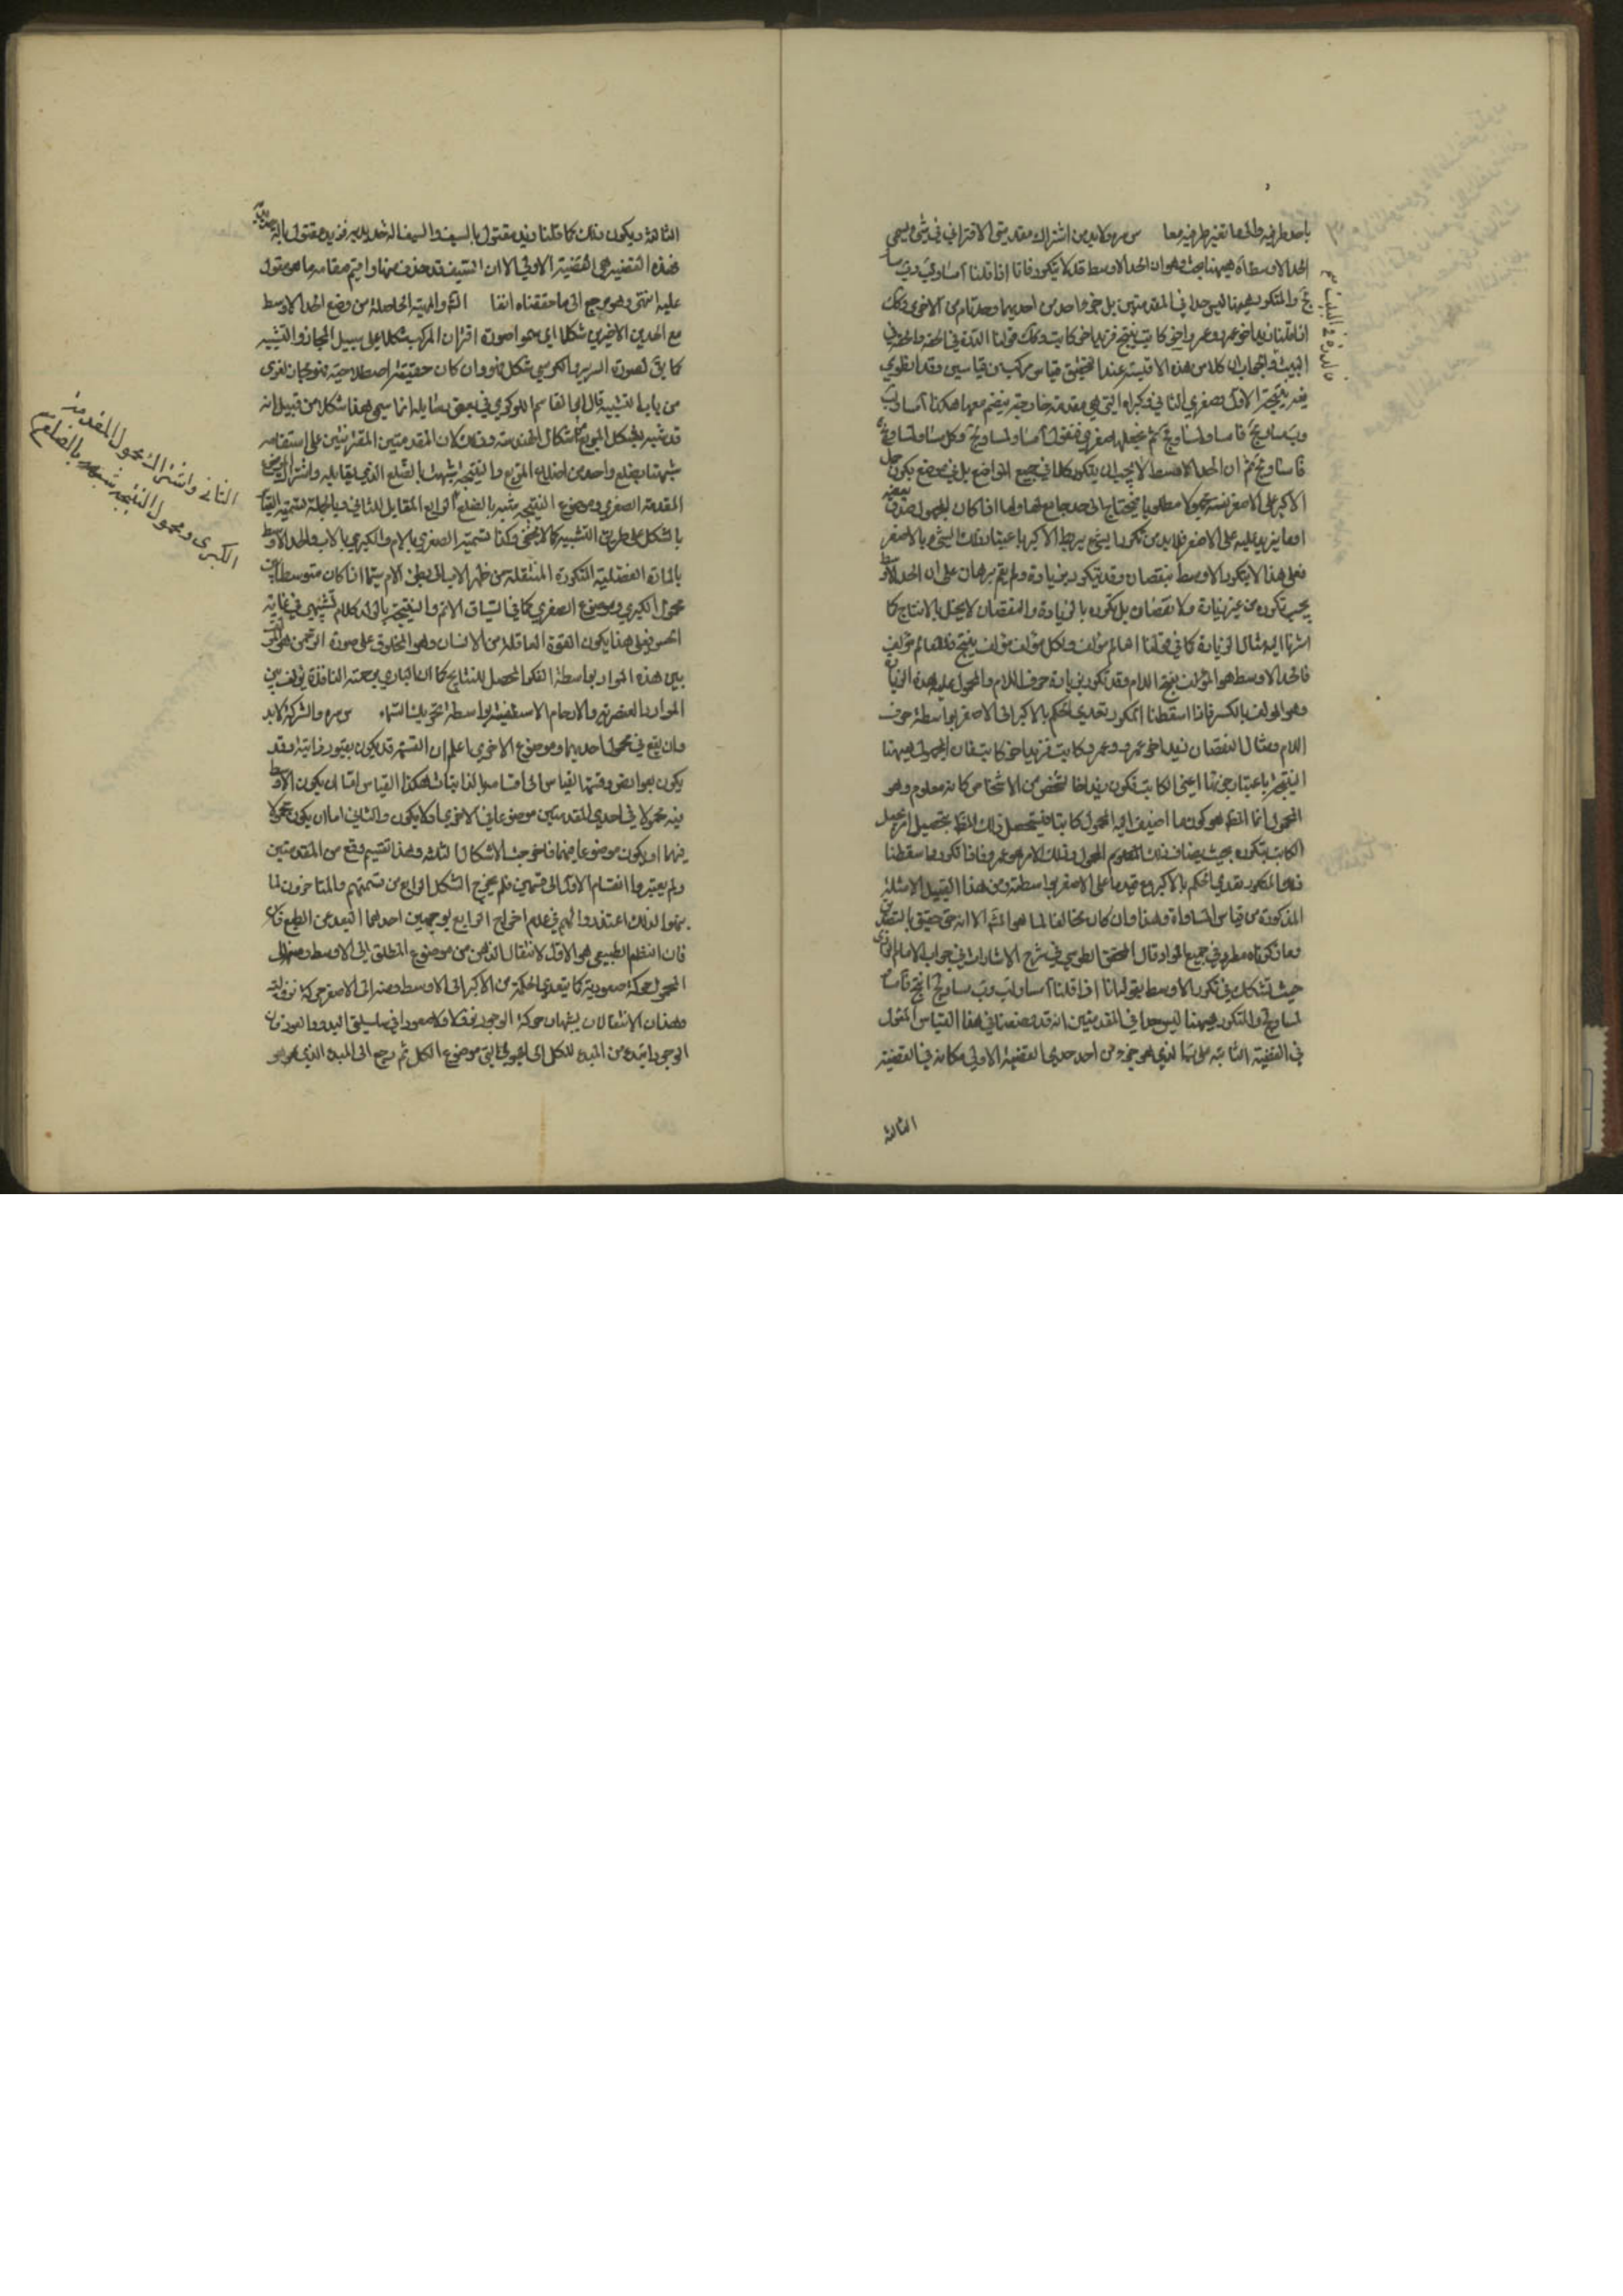 باحد طرفيه واما بتغير طرفيه معا س مره ولا بد من اشتراك مقدمتي الاقتراني في شيء يسمى
الحد الاوسط اه ههنا بحث وهو ان الحد الاوسط قد لا يتكرر فانا اذا قلنا آ مساو لب وب مساو
لج والمتكرر ههنا ليس حدا في المقدمتين بل جزء واحد من احديهما وحد تام من الاخرى وكذلك
اذا قلنا زيد اخو عمرو وعمرو اخو كاتب ينتج فزيد اخو كاتب وكذلك قولنا الدرة في الحقة والحقة في
البيت والجواب ان كلا من هذه الاقيسة عند التحقيق قياس مركب من قياسين وقد انطوى
فيه نتيجة الاول وصغرى الثاني وكبراه التي هي مقدمة خارجية ينضم معها هكذا آ مساو لب
وب مساو لج فآ مساو لمساو لج ثم نجعلها صغرى فنقول آ مساو لمساو لج وكل مساو لمساو لج
فآ مساو لج ثم ان الحد الاوسط لا يجب ان يتكرر كلا في جميع المواضع بل في موضع يكون حمل
الاكبر على الاصغر نسبة مجهولا مطلوبا فيحتاج الى حد جامع لهما واما اذا كان المجهول صدق بعضه
او ما يزيد عليه على الاصغر فلا بد من تكرر ما يقع به ربط الاكبر باعتبار ذلك الشيء بالاصغر
فعلى هذا لا يتكرر الاوسط بنقصان وقد يتكرر بزيادة ولم يقم برهان على ان الحد الاوسط
يجب تكرره من غير زيادة ولا نقصان بل تكرره بالزيادة والنقصان لا يخل بالانتاج كما
اشرنا اليه مثال الزيادة كما في قولنا العالم مؤلف ولكل مؤلف مؤلف ينتج فللعالم مؤلف
فالحد الاوسط هو المؤلف بفتح اللام وقد تكرر بزيادة حرف اللام والمحمول على هذه الزيادة
وهو المؤلف بالكسر فاذا اسقطنا المكرر تعدى الحكم بالاكبر الى الاصغر بواسطة حرف
اللام ومثال النقصان زيد اخو عمرو وعمرو كاتب فزيد اخو كاتب فان المجهول ههنا
النتيجة باعتبار جزئها اعني الكاتب فكون زيد اخا لشخص من الاشخاص كانه معلوم وهو
المجهول انما المط هو كون ما اضيف اليه المحمول كاتبا فيتحصل ذلك المط بتحصيل امر يجعل
الكاتب بتكرره بحيث يضاف ذلك المعلوم المجهول وذلك الامر هو عمرو فاذا تكرر واسقطنا
ذلك المكرر تعدى الحكم بالاكبر على الاصغر بواسطته ومن هذا القبيل الامثلة
المذكورة من قياس المساواة وهذا وان كان مخالفا لما هو المشهور الا انه حق حقيق بالتصديق
وما ذكرناه مطرد في جميع المواد قال المحقق الطوسي في شرح الاشارات في جواب الامام الرازي
حيث تشكك في تكرر الاوسط بقولنا اذا قلنا آ مساو لب وب مساو لج انتج فآ مساو
لمساو لج والمتكرر ههنا ليس حدا في المقدمتين انه قد وضعنا في هذا القياس المقول
في القضية الثانية على ب الذي هو جزء من احد حدي القضية الاولى مكانه في القضية
الثالثة
فالدرة في البيت مع
الثالثة ويكون ذلك كما قلنا زيد مقتول بالسيف والسيف آلة حديدية فزيد مقتول بآلة حديدية
هذه القضية هي القضية الاولى الا ان السيف قد حذف منها واقيم مقامه ما هو مقول
عليه انتهى وهو يرجع الى ما حققناه انفا الش والهيئة الحاصلة من وضع الحد الاوسط
مع الحدين الاخيرين شكلا اي سموا صورة اقتران المركب شكلا على سبيل المجاز والتشبيه
كما يق لصورة السرير والكرسي شكل فهو وان كان حقيقة اصطلاحية فهو مجاز لغوي
من باب التشبيه قال ابو القاسم اللوكري في بعض رسائله انما سمي هذا شكلا من قبيل انه
قد شبه بشكل المربع من اشكال الهندسة وذلك لان المقدمتين المقترنتين على استقامة
شبهتا بضلع واحد من اضلاع المربع والنتيجة شبهت بالضلع الذي يقابله واشتراك موضوع
المقدمة الصغرى وموضوع النتيجة شبه بالضلع الرابع المقابل للثاني وبالجملة تسمية القياس
بالشكل على طريق التشبيه كما لا يخفى وكذا تسمية الصغرى بالام والكبرى بالاب والحد الاوسط
بالمادة الفضلية المتكررة المنتقلة من ظهر الاب الى بطن الام سيما اذا كان متوسطا بين
محمول الكبرى وموضوع الصغرى كما في السياق الاتم والنتيجة بالولد كلام تشبيهي في غاية
الحسن فعلى هذا يكون القوة العاقلة من الانسان وهو المخلوق على صورة الرحمن هو المؤلف
بين هذه المواد بواسطة الفكر المحصل للنتايج كما ان الباري برحمته النافذة يؤلف بين
المواد العنصرية والارحام الاسطقسية بواسطة تحريك السماء س مره والشركة لا بد
وان يقع في محمول احديهما وموضوع الاخرى اعلم ان القسمة قد يكون بقيود ذاتية وقد
يكون بعوارض وقسمة القياس الى اقسامه بالذاتيات هكذا القياس اما ان يكون الاوسط
فيه محمولا في احدى المقدمتين موضوعا في الاخرى او لا يكون والثاني اما ان يكون محمولا
فيهما او يكون موضوعا فيهما فخرجت الاشكال الثلثة وهذا تقسيم وقع من المتقدمين
ولم يعتبروا انقسام الاول الى قسمين فلم يخرج الشكل الرابع من قسمتهم والمتاخرون لما
تنبهوا لذلك اعتذروا لهم في عدم اخراج الرابع بوجهين احدهما البعد عن الطبع
فان النظم الطبيعي هو الاول لانتقال الذهن من موضوع المطلق الى الاوسط ومنه الى
المحمول حركة صعودية كما يتعدى الحكم من الاكبر الى الاوسط ومنه الى الاصغر حركة نزولية
وهذان الانتقالان يشبهان حركة الوجود نزولا وصعودا في سلسلتي البدو والعود فان
الوجود ابتدء من المبدء للكل الى الهيولى التي موضوع الكل ثم رجع الى المبدء الذي هو هو
الثاني واشتراك محمول المقدمة
الكبرى ومحمول النتيجة شبه بالضلع